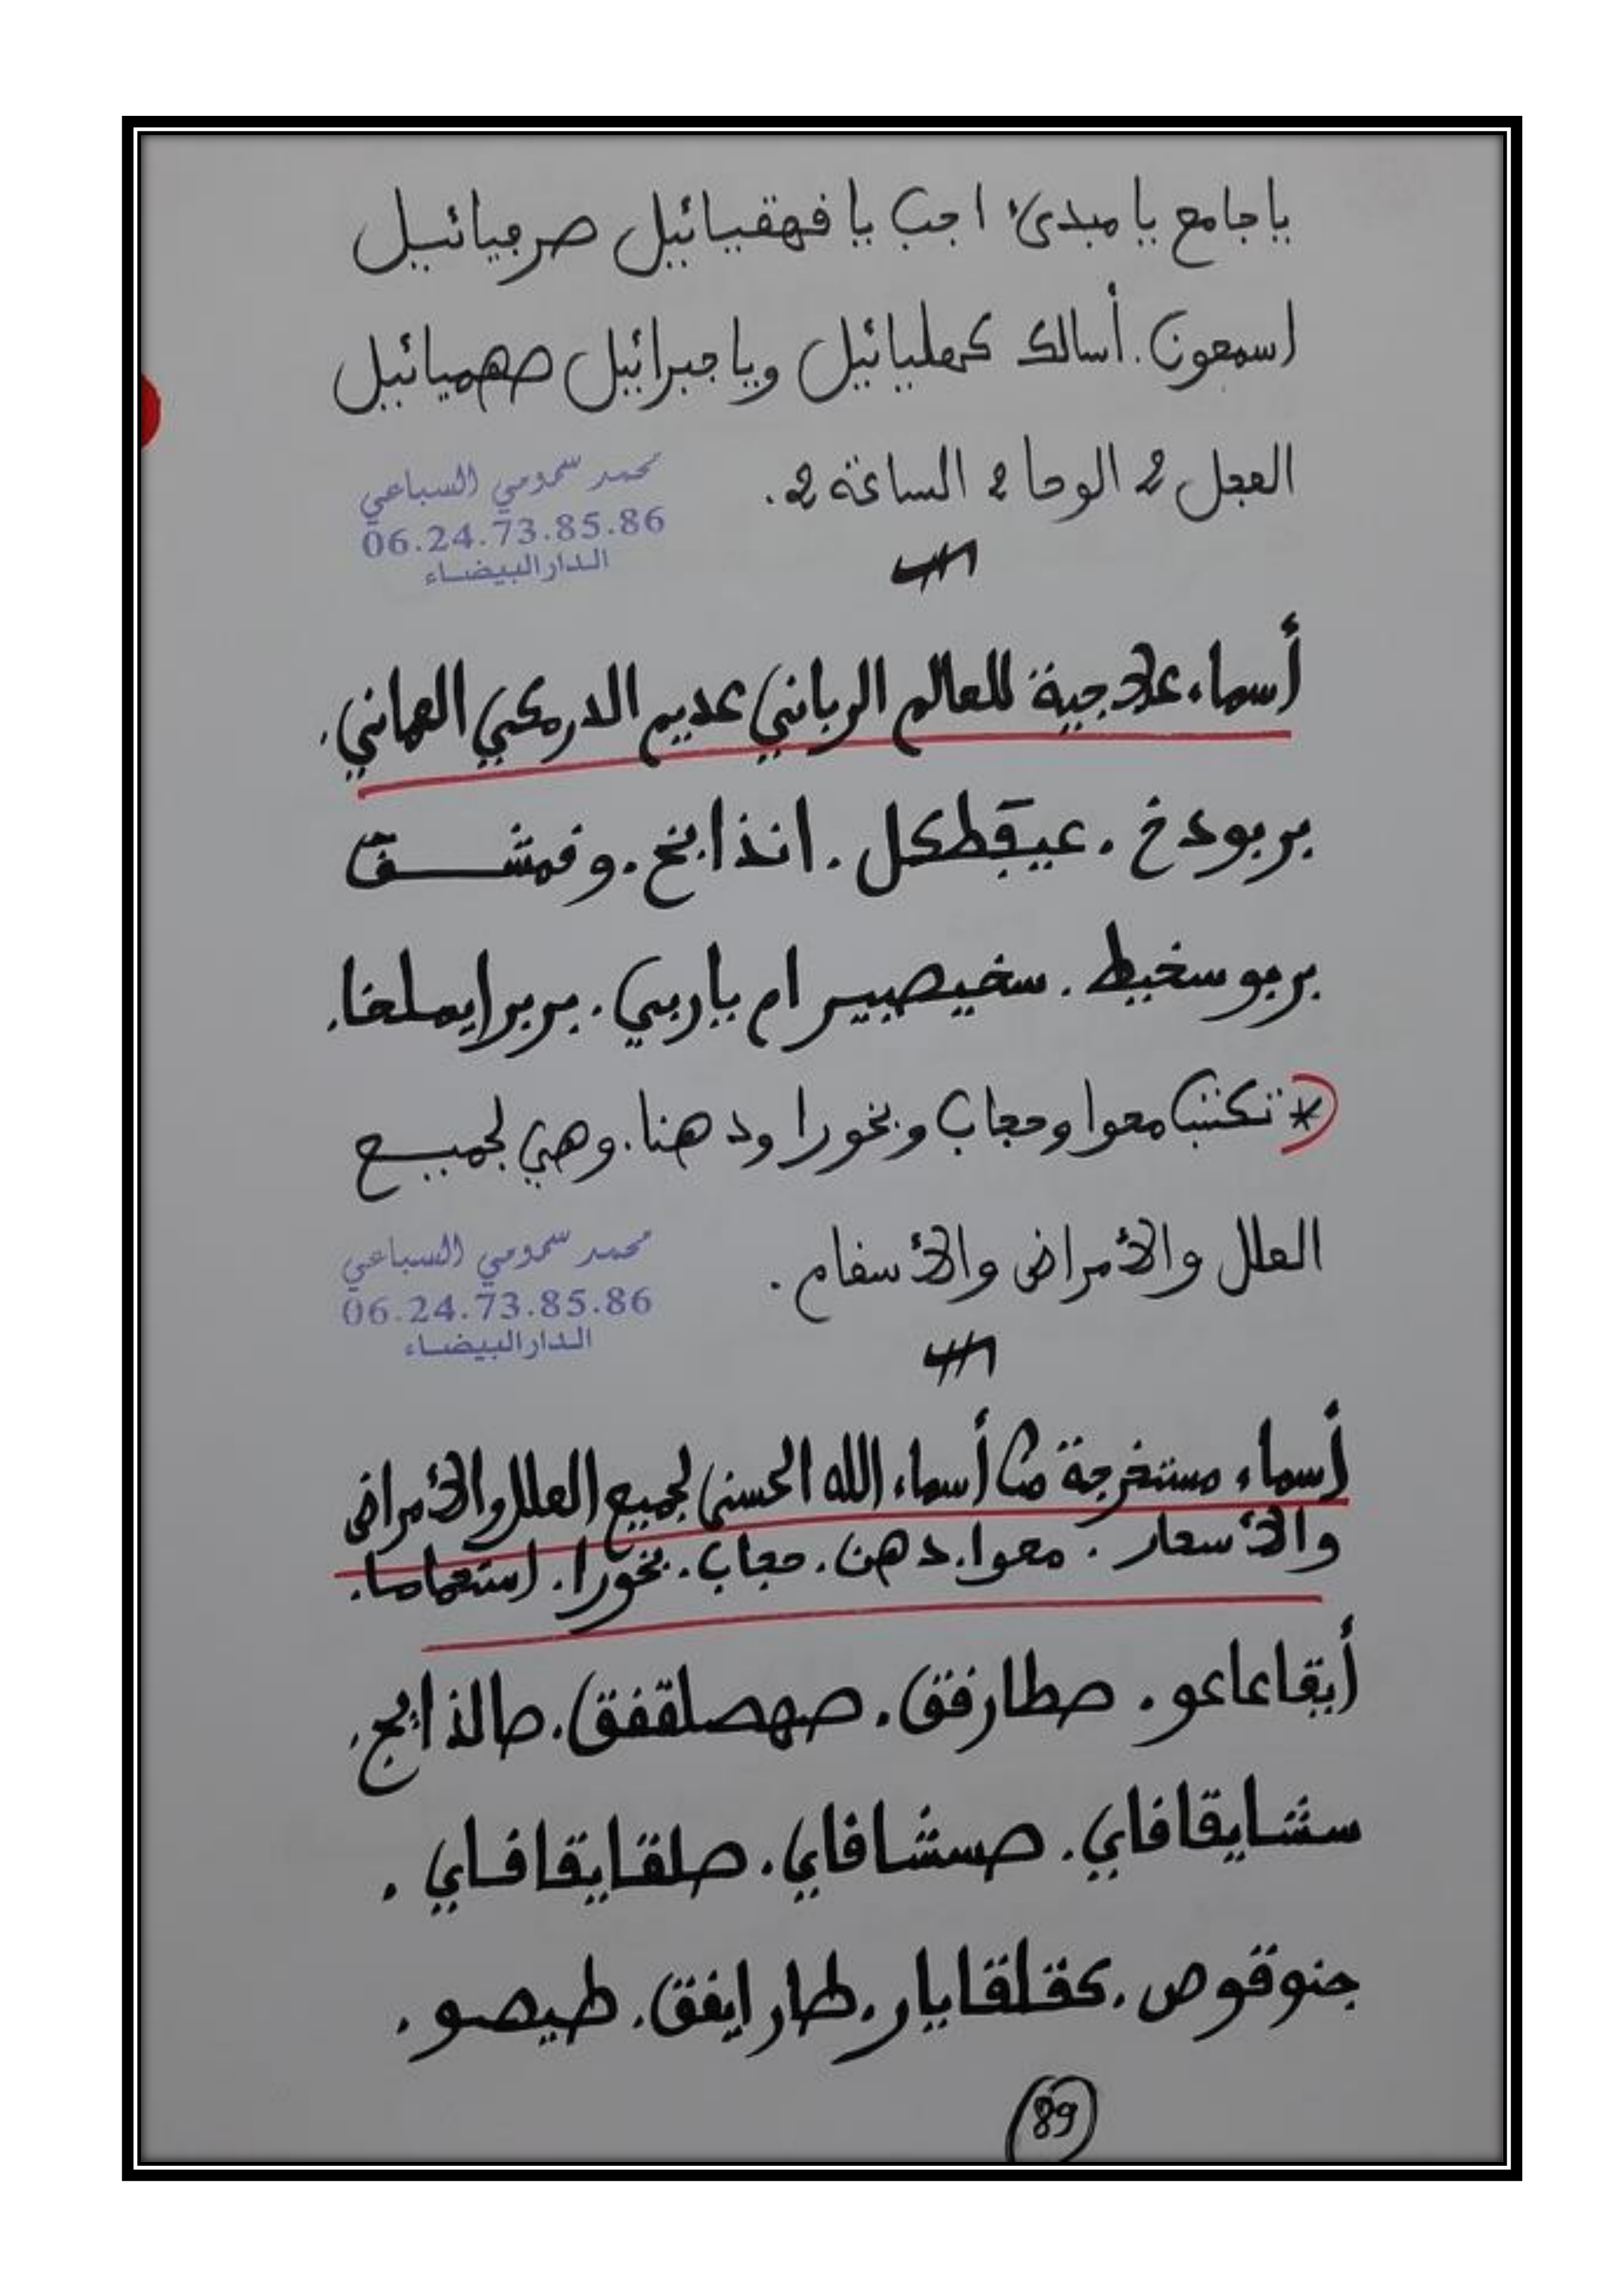 يا جامع يا مبدئ اجب يا فهقيائيل صرميائيل
اسمعون. أسالك كهليائيل ويا جبرائيل صهميائيل
العجل 2 الوحا 2 الساعة 2.
محمد سمومي السباعي
06.24.73.85.86
الدار البيضاء
أسماء علاجية للعالم الرباني عديم الدرمكي العماني.
بربودخ. عيقطكل. انذابخ. وفمشق
بربو سخيط. سخيصيبر ام ياربي. بربرايملخا.
* تكتب محوا وحجاب وبخورا ودهنا. وهي لجميع
العلل والأمراض والأسقام.
محمد سمومي السباعي
06.24.73.85.86
الدار البيضاء
أسماء مستخرجة من أسماء الله الحسنى لجميع العلل والأمراض
والأسحار. محوا. دهن. حجاب. بخورا. استحماما.
أيقاعاعو. صطارفق. صهصلقفق. صالذابج.
سشايقافاي. صسشافاي. صلقايقافاي.
جنوقوص. كقلقايار. طارايفق. طيصو.
89